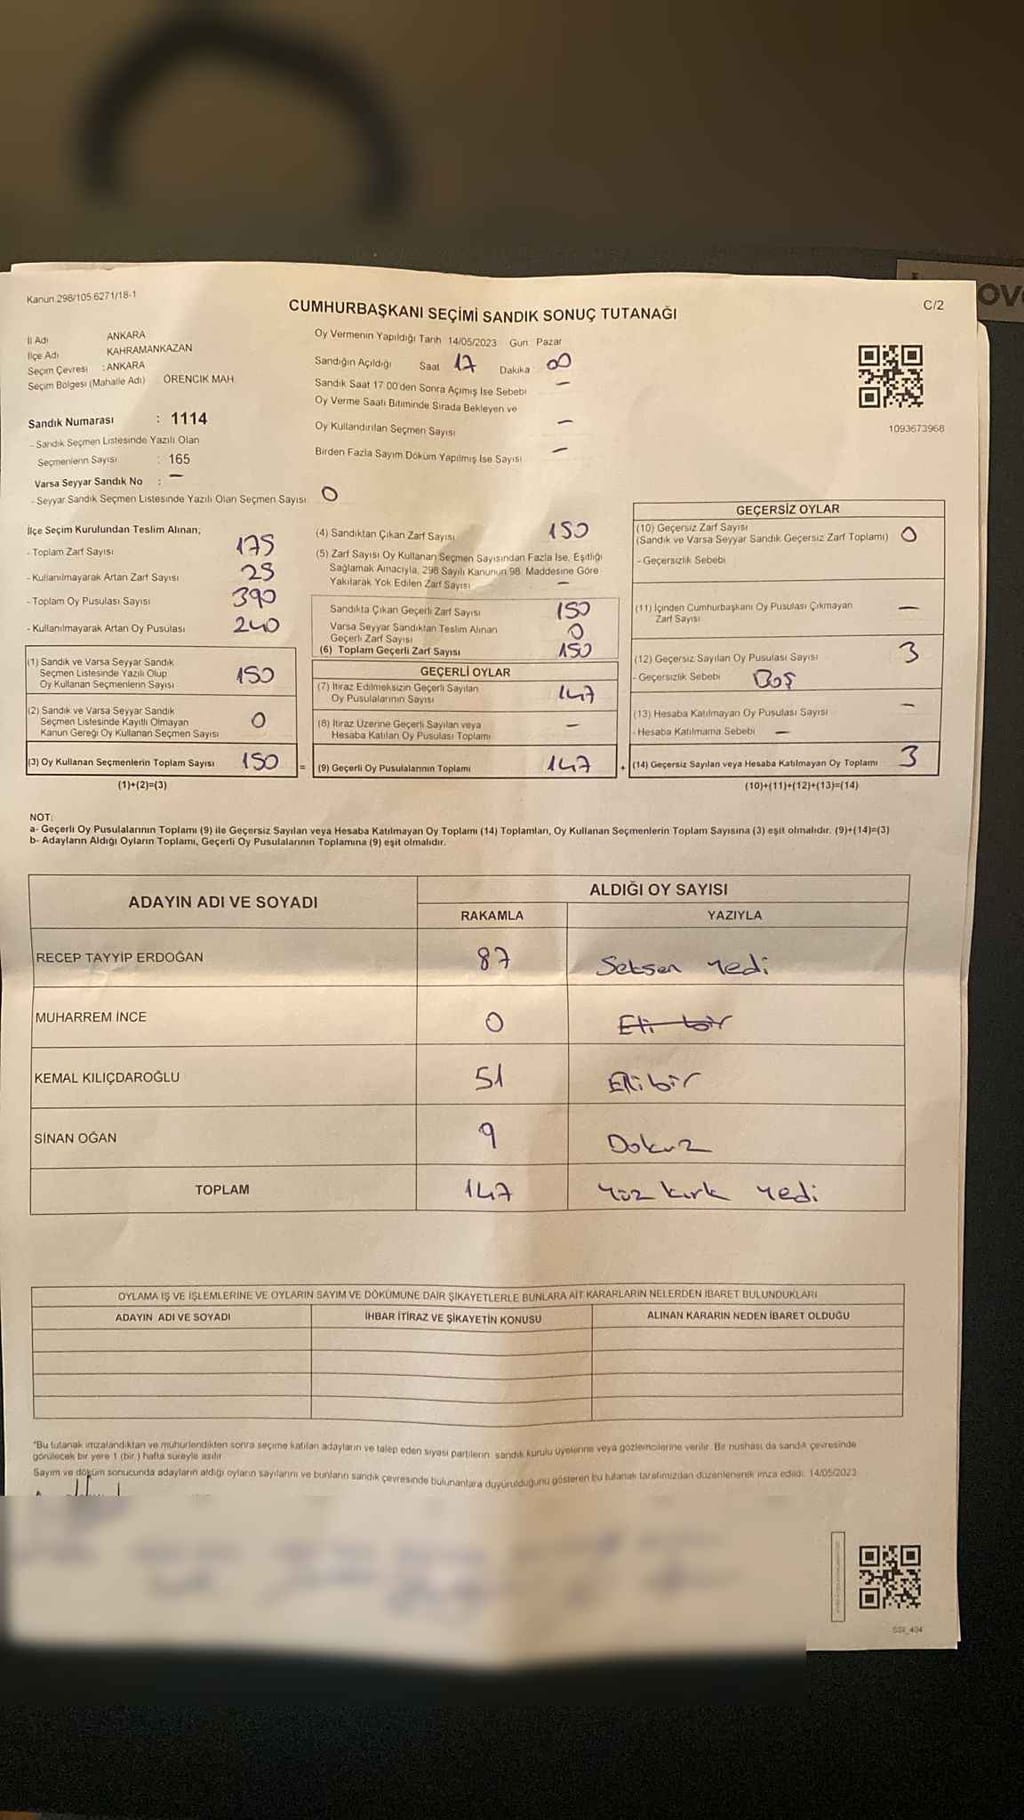 OV
Kanun.298/105.6271/18-1
C/2
CUMHURBAŞKANI SEÇİMİ SANDIK SONUÇ TUTANAĞI
İl Adı ANKARA
İlçe Adı KAHRAMANKAZAN
Seçim Çevresi : ANKARA
Seçim Bölgesi (Mahalle Adı) ÖRENCİK MAH
Sandık Numarası : 1114
- Sandık Seçmen Listesinde Yazılı Olan
Seçmenlerin Sayısı : 165
Varsa Seyyar Sandık No : —
- Seyyar Sandık Seçmen Listesinde Yazılı Olan Seçmen Sayısı 0
Oy Vermenin Yapıldığı Tarih 14/05/2023 Gün: Pazar
Sandığın Açıldığı Saat 17 Dakika 00
Sandık Saat 17:00'den Sonra Açımış İse Sebebi —
Oy Verme Saati Bitiminde Sırada Bekleyen ve
Oy Kullandırılan Seçmen Sayısı —
Birden Fazla Sayım Döküm Yapılmış İse Sayısı —
1093673968
İlçe Seçim Kurulundan Teslim Alınan;
- Toplam Zarf Sayısı 175
- Kullanılmayarak Artan Zarf Sayısı 25
- Toplam Oy Pusulası Sayısı 390
- Kullanılmayarak Artan Oy Pusulası 240
(1) Sandık ve Varsa Seyyar Sandık
Seçmen Listesinde Yazılı Olup
Oy Kullanan Seçmenlerin Sayısı 150
(2) Sandık ve Varsa Seyyar Sandık
Seçmen Listesinde Kayıtlı Olmayan
Kanun Gereği Oy Kullanan Seçmen Sayısı 0
(3) Oy Kullanan Seçmenlerin Toplam Sayısı 150 =
(1)+(2)=(3)
(4) Sandıktan Çıkan Zarf Sayısı 150
(5) Zarf Sayısı Oy Kullanan Seçmen Sayısından Fazla İse, Eşitliği
Sağlamak Amacıyla, 298 Sayılı Kanunun 98. Maddesine Göre
Yakılarak Yok Edilen Zarf Sayısı —
Sandıkta Çıkan Geçerli Zarf Sayısı 150
Varsa Seyyar Sandıktan Teslim Alınan
Geçerli Zarf Sayısı 0
(6) Toplam Geçerli Zarf Sayısı 150
GEÇERLİ OYLAR
(7) İtiraz Edilmeksizin Geçerli Sayılan
Oy Pusulalarının Sayısı 147
(8) İtiraz Üzerine Geçerli Sayılan veya
Hesaba Katılan Oy Pusulası Toplamı —
(9) Geçerli Oy Pusulalarının Toplamı 147 +
GEÇERSİZ OYLAR
(10) Geçersiz Zarf Sayısı
(Sandık ve Varsa Seyyar Sandık Geçersiz Zarf Toplamı) 0
- Geçersizlik Sebebi
(11) İçinden Cumhurbaşkanı Oy Pusulası Çıkmayan
Zarf Sayısı —
(12) Geçersiz Sayılan Oy Pusulası Sayısı 3
- Geçersizlik Sebebi Boş
(13) Hesaba Katılmayan Oy Pusulası Sayısı —
- Hesaba Katılmama Sebebi —
(14) Geçersiz Sayılan veya Hesaba Katılmayan Oy Toplamı 3
(10)+(11)+(12)+(13)=(14)
NOT:
a- Geçerli Oy Pusulalarının Toplamı (9) ile Geçersiz Sayılan veya Hesaba Katılmayan Oy Toplamı (14) Toplamları, Oy Kullanan Seçmenlerin Toplam Sayısına (3) eşit olmalıdır. (9)+(14)=(3)
b- Adayların Aldığı Oyların Toplamı, Geçerli Oy Pusulalarının Toplamına (9) eşit olmalıdır.
ADAYIN ADI VE SOYADI ALDIĞI OY SAYISI
RAKAMLA YAZIYLA
RECEP TAYYİP ERDOĞAN 87 Seksen Yedi
MUHARREM İNCE 0 Eli bir
KEMAL KILIÇDAROĞLU 51 Elli bir
SİNAN OĞAN 9 Dokuz
TOPLAM 147 Yüz kırk Yedi
OYLAMA İŞ VE İŞLEMLERİNE VE OYLARIN SAYIM VE DÖKÜMÜNE DAİR ŞİKAYETLERLE BUNLARA AİT KARARLARIN NELERDEN İBARET BULUNDUKLARI
ADAYIN ADI VE SOYADI İHBAR İTİRAZ VE ŞİKAYETİN KONUSU ALINAN KARARIN NEDEN İBARET OLDUĞU
"Bu tutanak imzalandıktan ve mühürlendikten sonra seçime katılan adayların ve talep eden siyasi partilerin sandık kurulu üyelerine veya gözlemcilerine verilir. Bir nüshası da sandık çevresinde
görülecek bir yere 1 (bir) hafta süreyle asılır.
Sayım ve döküm sonucunda adayların aldığı oyların sayılarını ve bunların sandık çevresinde bulunanlara duyurulduğunu gösteren bu tutanak tarafımızdan düzenlenerek imza edildi. 14/05/2023